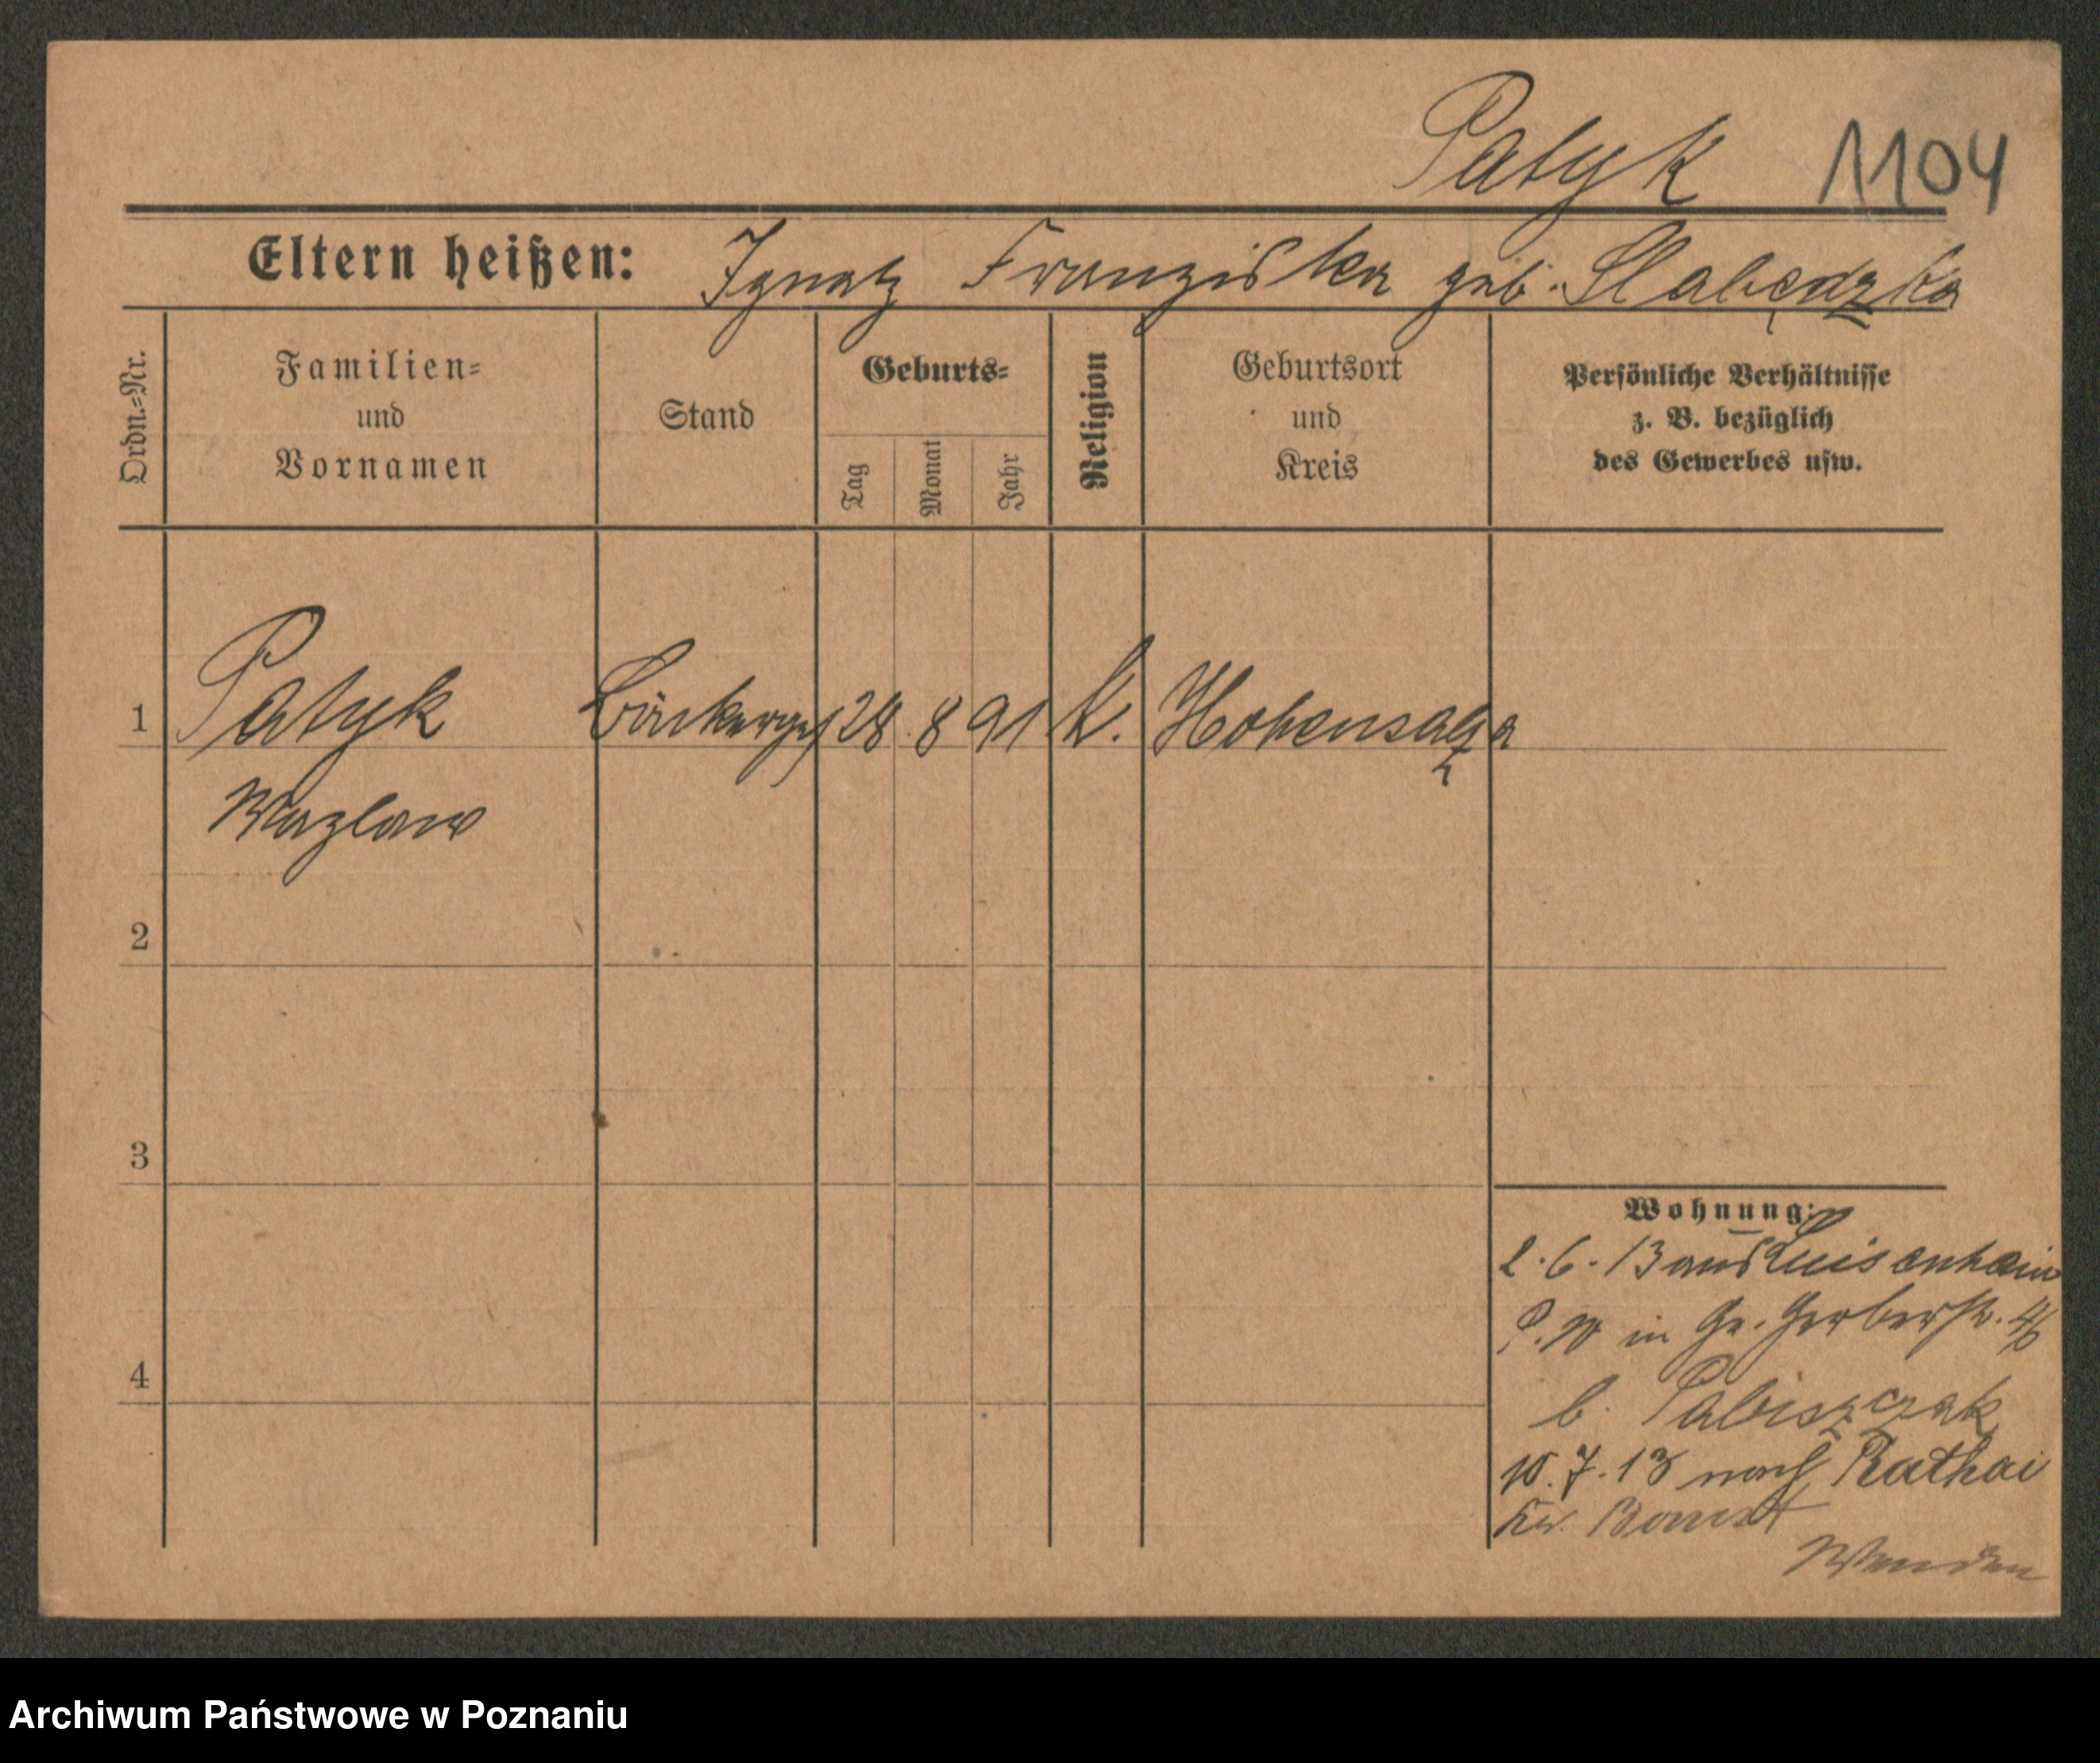 Patyk 1104
Eltern heißen: Ignatz Franziska geb. Slabędzka
Ordn.=Nr.
Familien=
und
Vornamen
Stand
Geburts=
Tag
Monat
Jahr
Religion
Geburtsort
und
Kreis
Persönliche Verhältnisse
z. B. bezüglich
des Gewerbes usw.
1 Patyk Bäckerges 28. 8 91 k. Hohensalza
Wazlaw
2
3
4
Wohnung:
2.6.13 aus Luisenhain
P. W in Gr. Gerberstr. 46
b. Pabiszczak
10.7.13 nach Rathai
Kr. Bomst
Archiwum Państwowe w Poznaniu